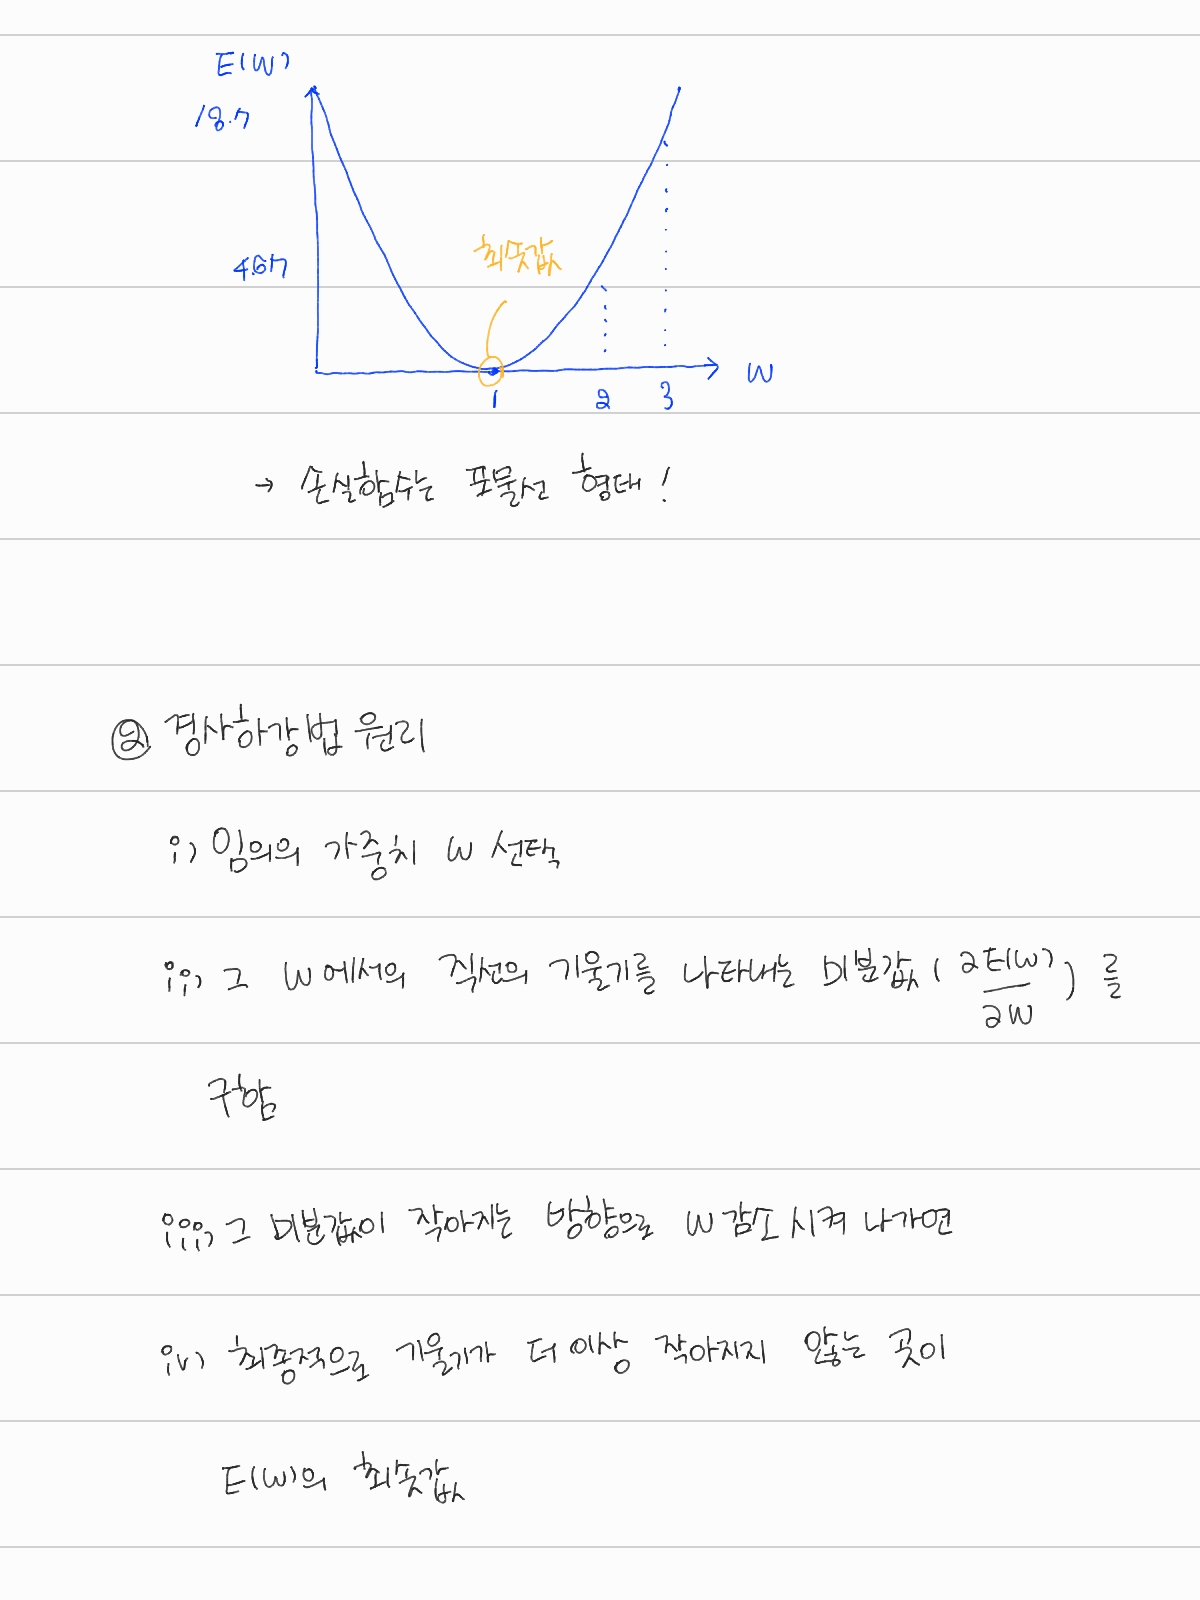 E(W)
18.7
최솟값
4.67
W
1 2 3
→ 손실함수는 포물선 형태!
② 경사하강법 원리
i) 임의의 가중치 W 선택
ii) 그 W에서의 직선의 기울기를 나타내는 미분값 ( ∂E(W) / ∂W ) 를
구함
iii) 그 미분값이 작아지는 방향으로 W 감소시켜 나가면
iv) 최종적으로 기울기가 더 이상 작아지지 않는 곳이
E(W)의 최솟값